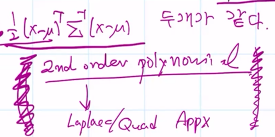 -½(x-μ)ᵀΣ⁻¹(x-μ) 두개가 같다.
2nd order polynomial
Laplace/Quad Appx